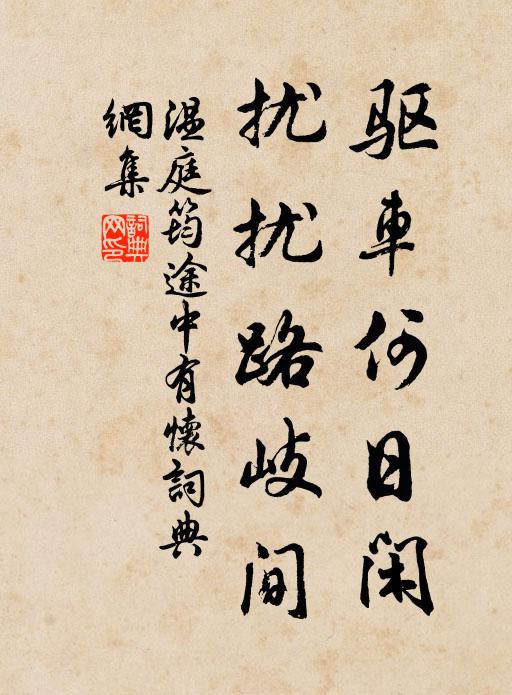 驱車何日闲
扰扰路岐间
温庭筠途中有懷詞典
網集
詞典
网印